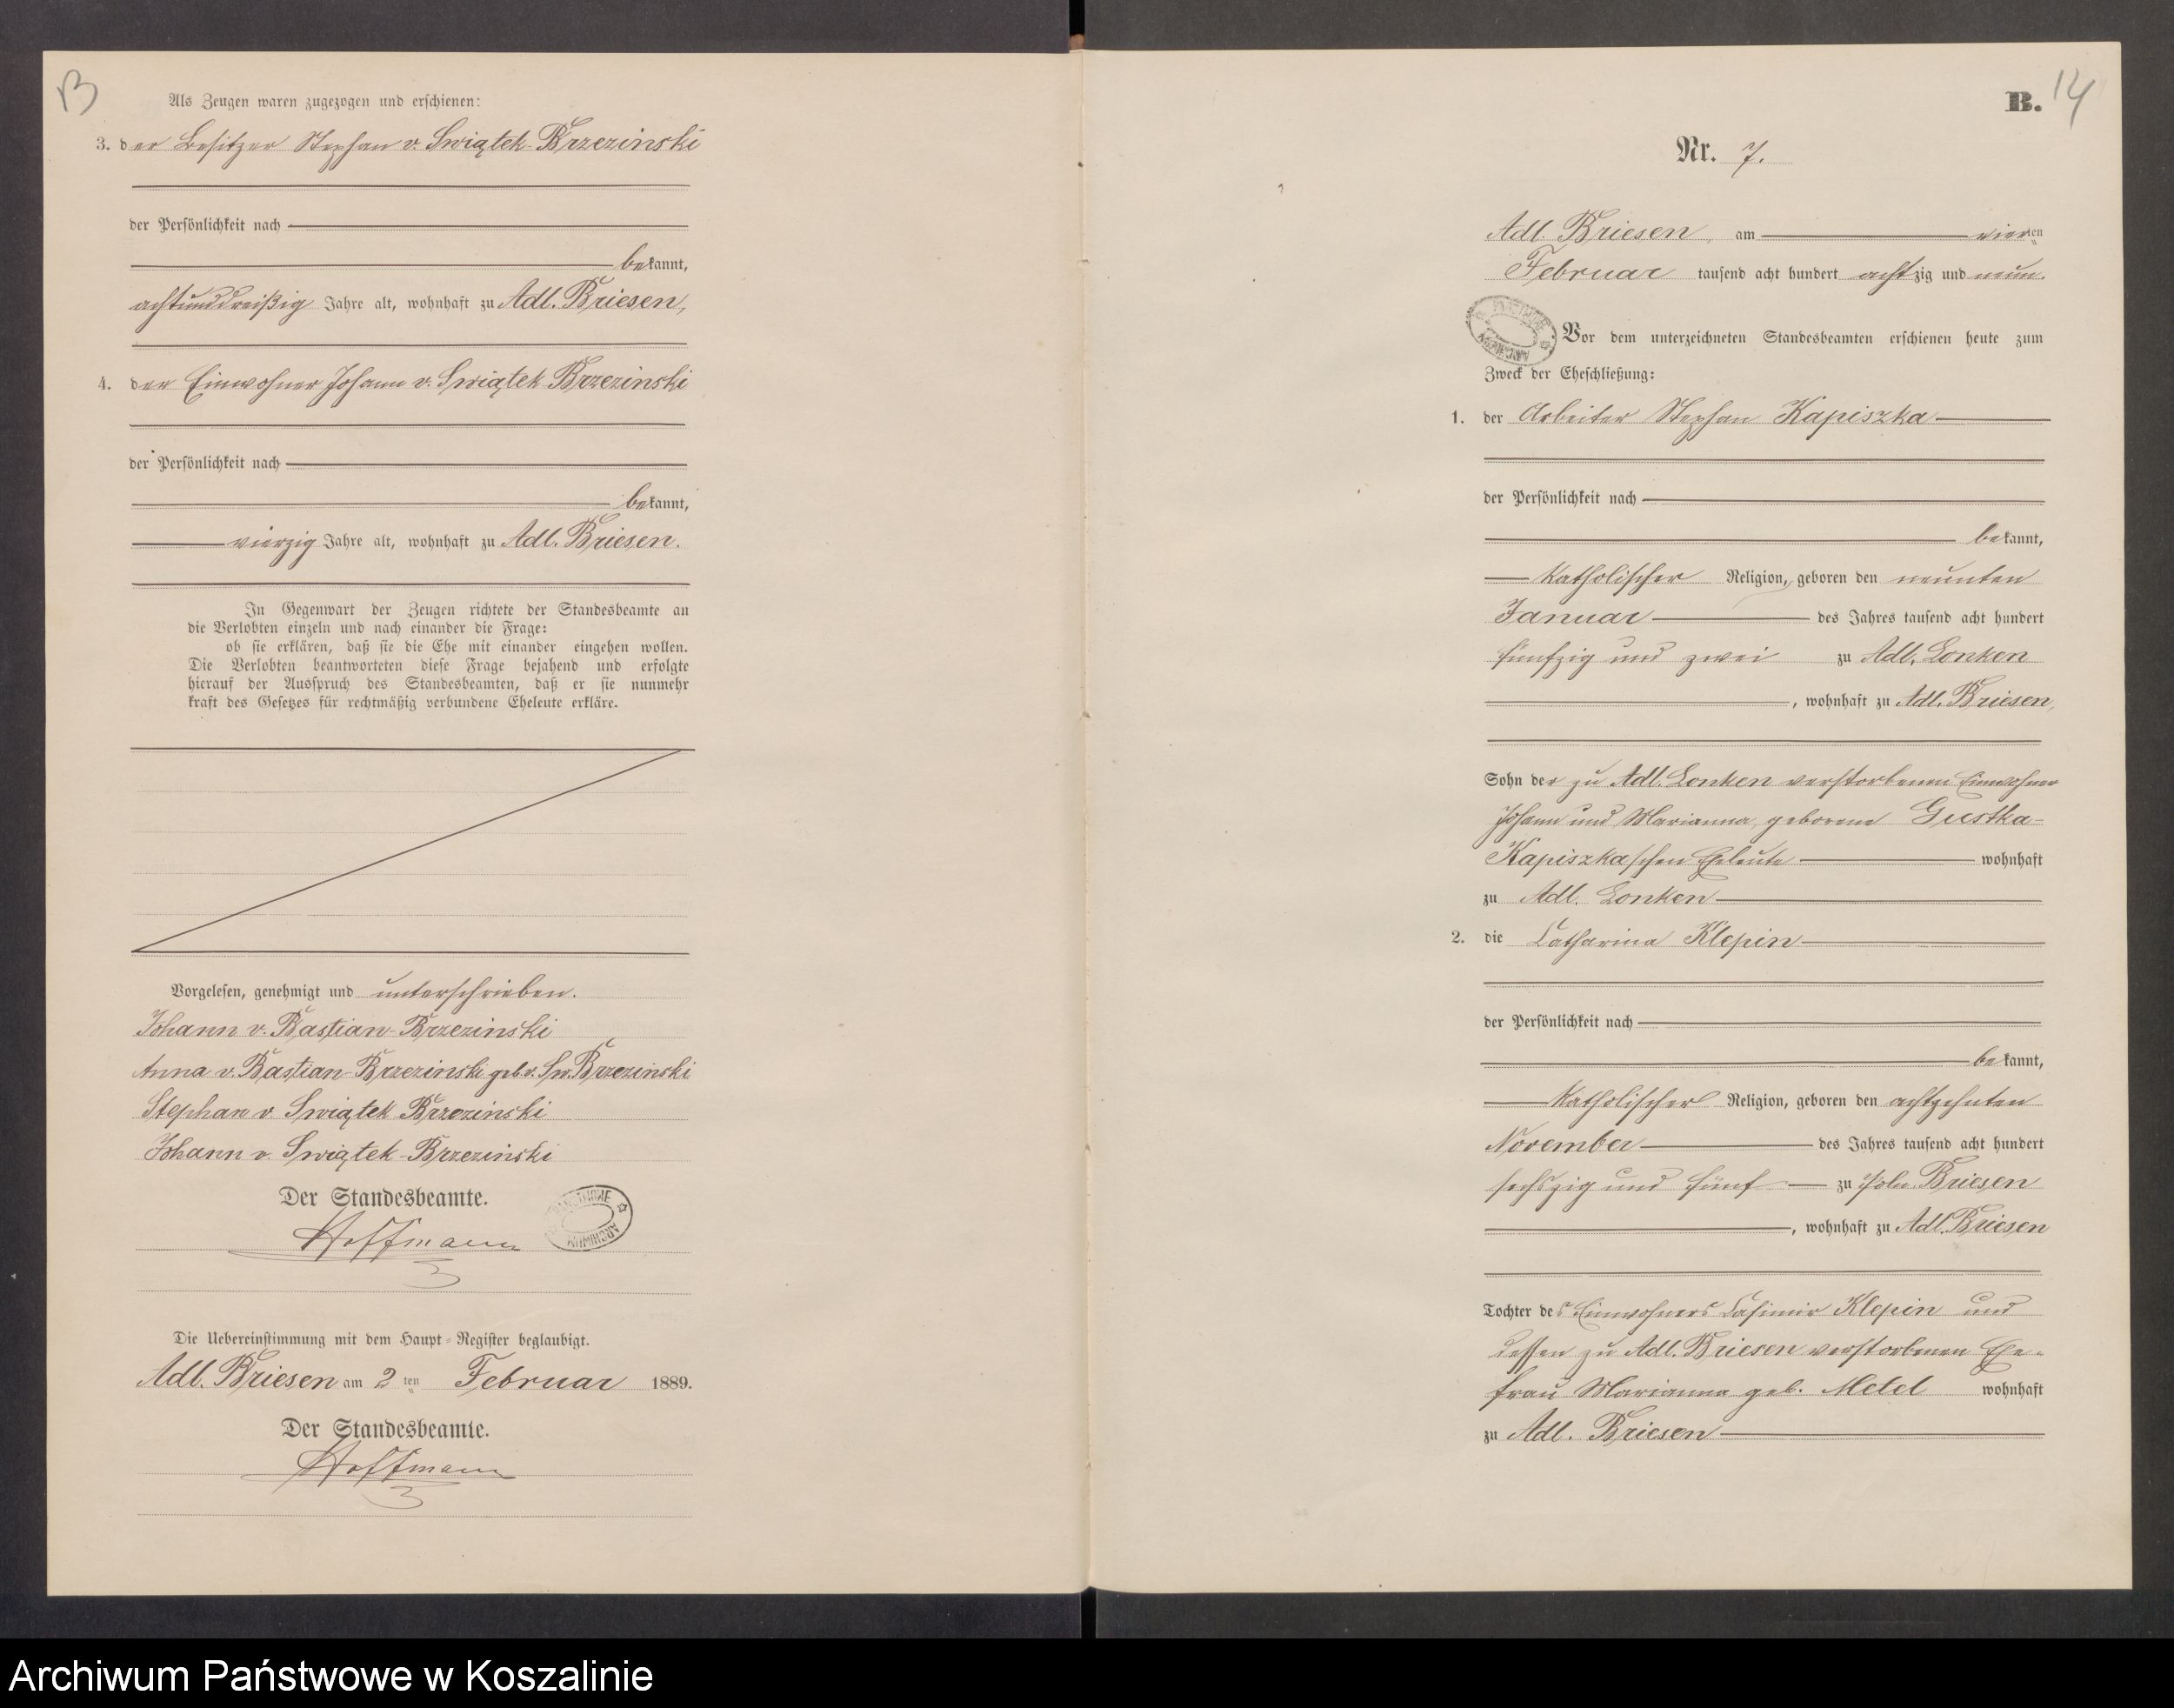 13
Als Zeugen waren zugezogen und erschienen:
3. der Besitzer Stephan v. Swiątek-Brzezinski
der Persönlichkeit nach
bekannt,
achtunddreißig Jahre alt, wohnhaft zu Adl. Briesen,
4. der Einwohner Johann v. Swiątek Brzezinski
der Persönlichkeit nach
bekannt,
vierzig Jahre alt, wohnhaft zu Adl. Briesen.
In Gegenwart der Zeugen richtete der Standesbeamte an
die Verlobten einzeln und nach einander die Frage:
ob sie erklären, daß sie die Ehe mit einander eingehen wollen.
Die Verlobten beantworteten diese Frage bejahend und erfolgte
hierauf der Ausspruch des Standesbeamten, daß er sie nunmehr
kraft des Gesetzes für rechtmäßig verbundene Eheleute erkläre.
Vorgelesen, genehmigt und unterschrieben.
Johann v. Bastian-Brzezinski
Anna v. Bastian-Brzezinski geb. v. Sw. Brzezinski
Stephan v. Swiątek Brzezinski
Johann v. Swiątek-Brzezinski
Der Standesbeamte.
Hoffmann
Die Uebereinstimmung mit dem Haupt-Register beglaubigt.
Adl. Briesen am 2ten Februar 1889.
Der Standesbeamte.
Hoffmann
B. 14
Nr. 7.
Adl. Briesen, am vierten
Februar tausend acht hundert achtzig und neun.
Vor dem unterzeichneten Standesbeamten erschienen heute zum
Zweck der Eheschließung:
1. der Arbeiter Stephan Kapiszka
der Persönlichkeit nach
bekannt,
katholischer Religion, geboren den neunten
Januar des Jahres tausend acht hundert
fünfzig und zwei zu Adl. Lonken
, wohnhaft zu Adl. Briesen,
Sohn der zu Adl. Lonken verstorbenen Einwohner
Johann und Marianna, geborene Gustka-
Kapiszkaschen Eheleute wohnhaft
zu Adl. Lonken
2. die Catharina Klepin
der Persönlichkeit nach
bekannt,
katholischer Religion, geboren den achtzehnten
November des Jahres tausend acht hundert
sechszig und fünf zu Poln. Briesen
, wohnhaft zu Adl. Briesen
Tochter des Einwohners Casimir Klepin und
dessen zu Adl. Briesen verstorbenen Ehe-
frau Marianna geb. Metel wohnhaft
zu Adl. Briesen
Archiwum Państwowe w Koszalinie